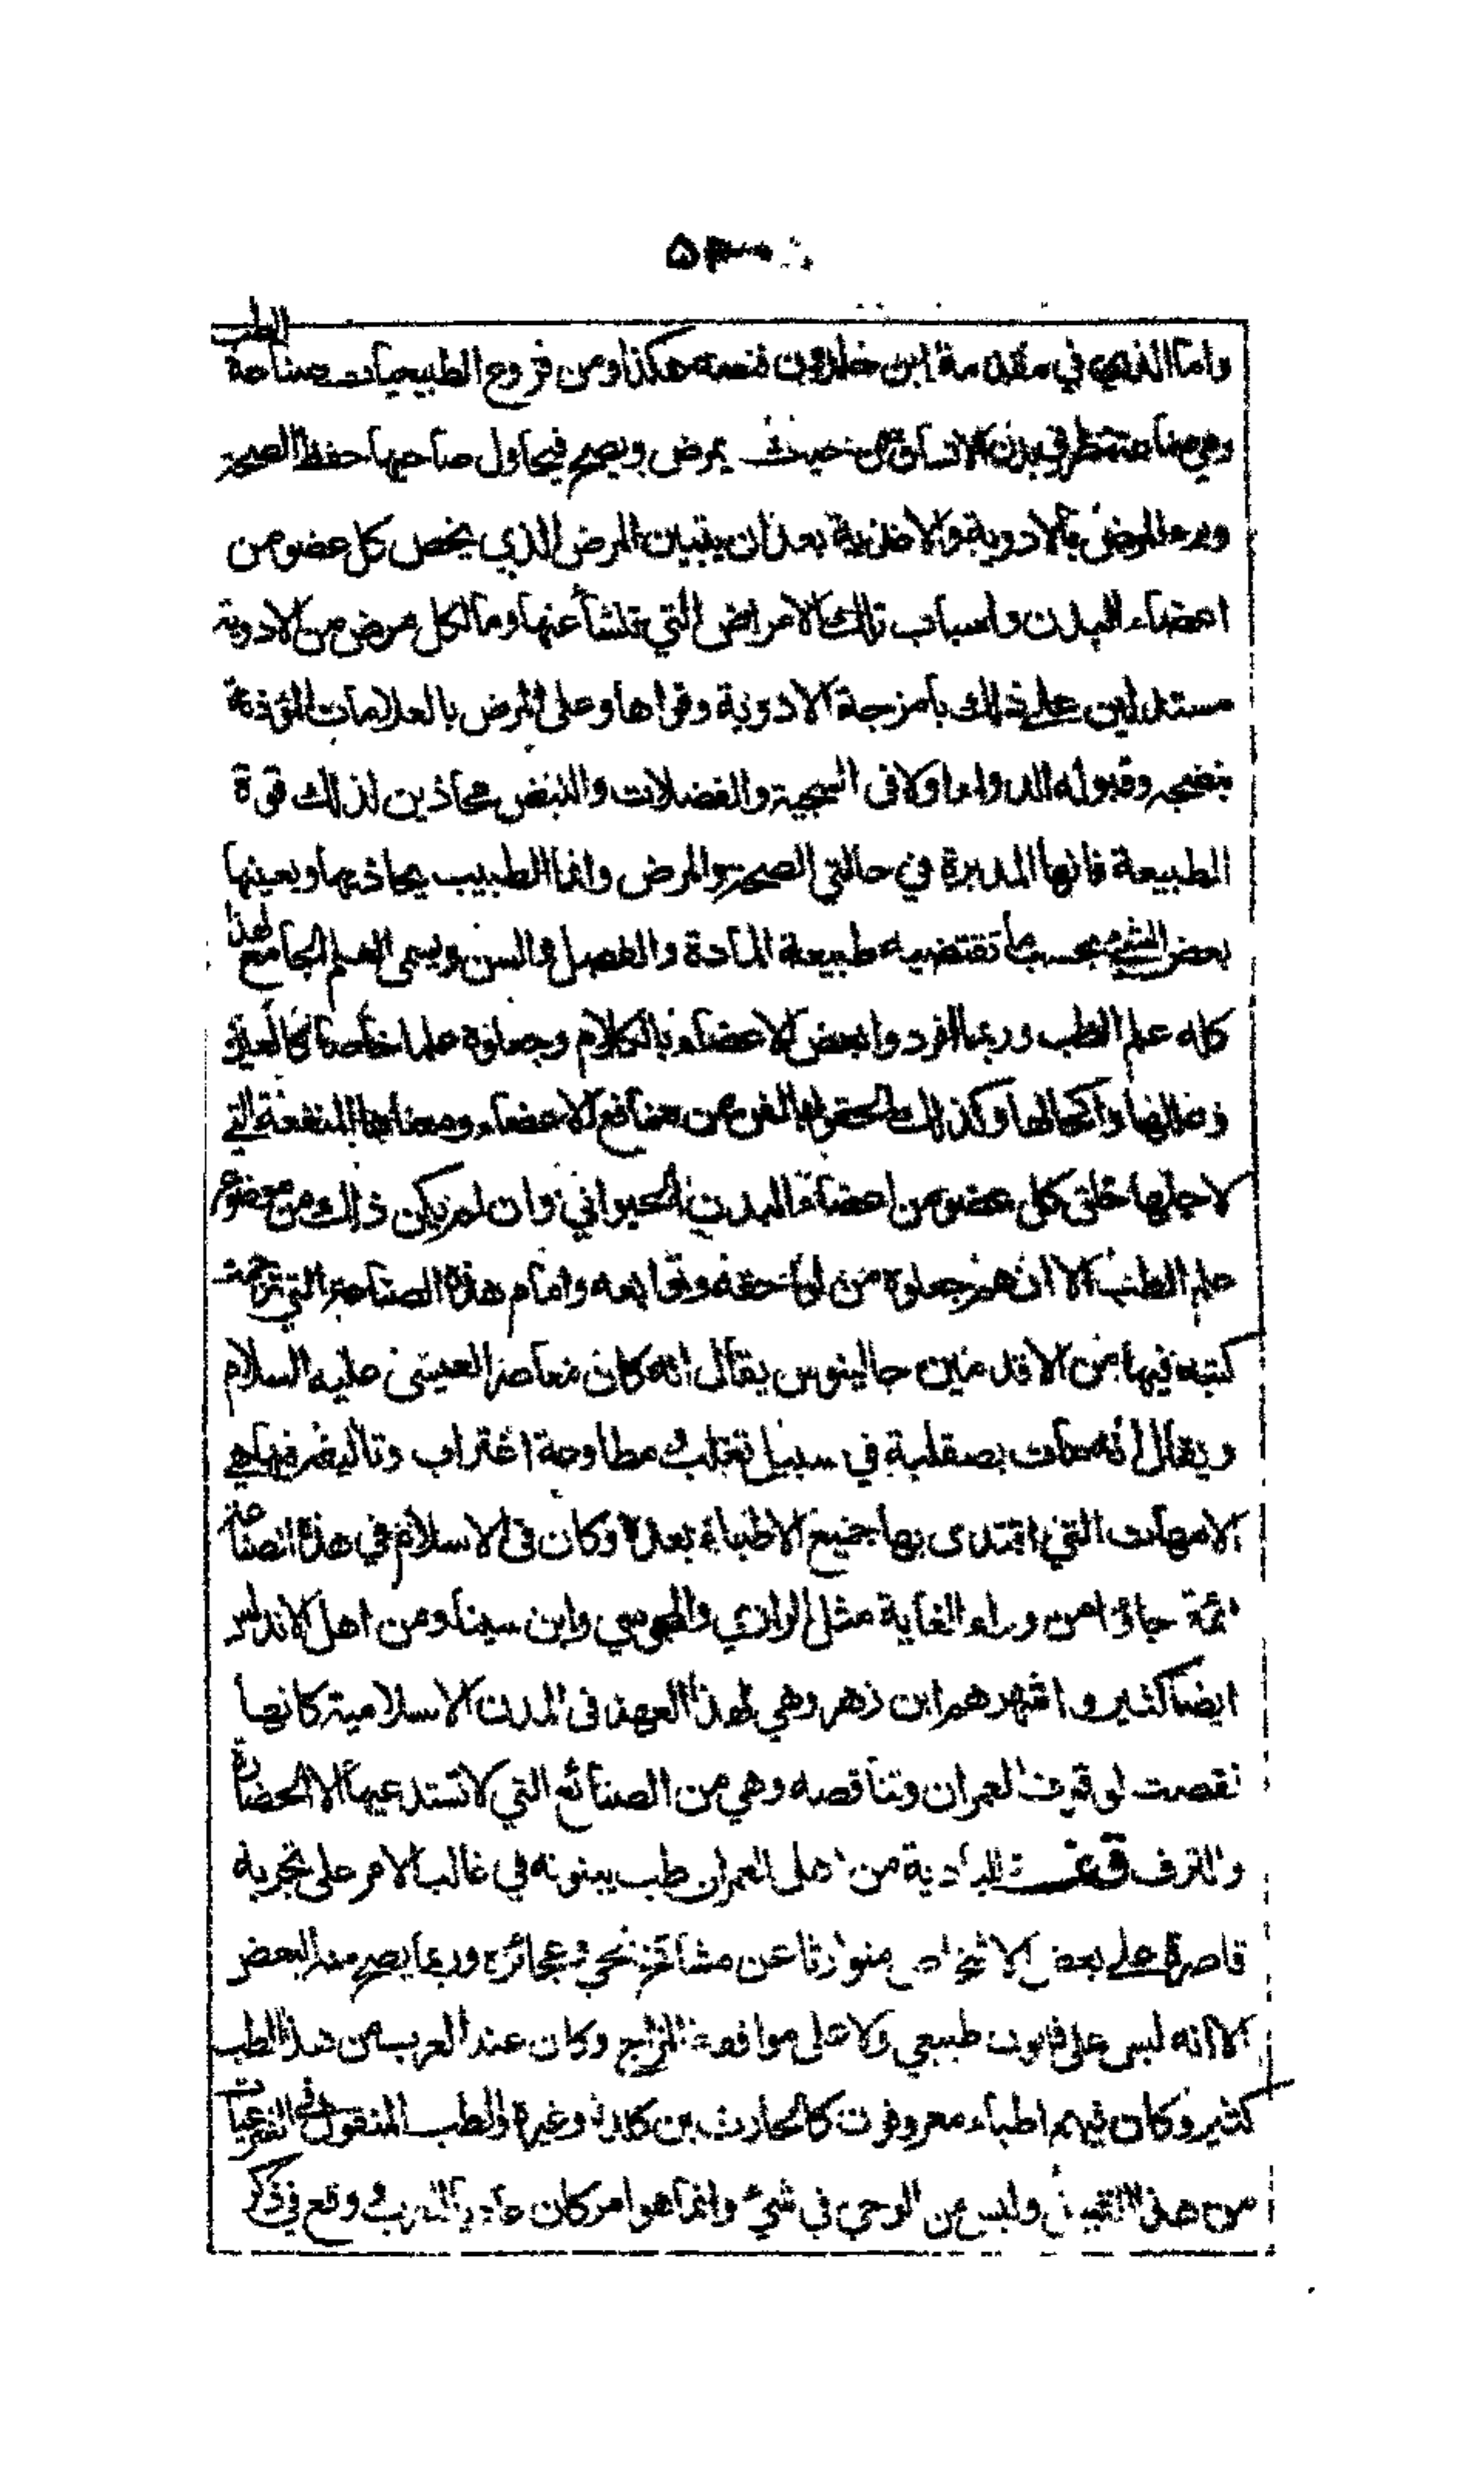 واما الذي في مقدمة ابن خلدون فنصه هكذا ومن فروع الطبيعيات صناعة الطب
وهي صناعة تنظر في بدن الانسان من حيث يمرض ويصح فيحاول صاحبها حفظ الصحة
وبرء المرض بالادوية والاغذية بعد ان يتبين المرض الذي يخص كل عضو من
اعضاء البدن واسباب تلك الامراض التي تنشأ عنها وما لكل مرض من الادوية
مستدلين على ذلك بامزجة الادوية وقواها وعلى المرض بالعلامات المؤذنة
بنضجه وقبوله الدواء اولا فى السجية والفضلات والنبض محاذين لذلك قوة
الطبيعة فانها المدبرة في حالتي الصحة والمرض وانما الطبيب يحاذيها ويعينها
بعض الشئ بحسب ما تقتضيه طبيعة المادة والفصل والسن ويسمى العلم الجامع لهذا
كله علم الطب وربما افردوا بعض الاعضاء بالكلام وجعلوه علما خاصا كالعين
وعللها واكحالها وكذلك الحقوا بالفن من منافع الاعضاء ومعناها المنفعة التي
لاجلها خلق كل عضو من اعضاء البدن الحيواني وان لم يكن ذلك من موضوع
علم الطب الا انهم جعلوه من لواحقه وتوابعه وامام هذه الصناعة التي ترجمت
كتبه فيها من الاقدمين جالينوس يقال انه كان معاصرا لعيسى عليه السلام
ويقال انه مات بصقلية في سبيل تغلب ومطاوعة اغتراب وتاليفه فيها هي
الامهات التي اقتدى بها جميع الاطباء بعده وكان فى الاسلام في هذه الصناعة
ائمة جاؤا من وراء الغاية مثل الرازي والمجوسي وابن سينا ومن اهل الاندلس
ايضا كثير واشهرهم ابن زهر وهي لهذا العهد فى المدن الاسلامية كانها
نقصت لوقوف العمران وتناقصه وهي من الصنائع التي لا تستدعيها الا الحضارة
والترف وقف للبادية من اهل العمران طب يبنونه في غالب الامر على تجربة
قاصرة على بعض الاشخاص متوارثا عن مشائخ الحي وعجائزه وربما يصح منه البعض
الا انه ليس على قانون طبيعي ولا على موافقة المزاج وكان عند العرب من هذا الطب
كثير وكان فيهم اطباء معروفون كالحارث بن كلدة وغيره والطب المنقول فى الشرعيات
من هذا القبيل وليس من الوحي في شيء وانما هو امر كان عاديا للعرب ووقع في ذكر